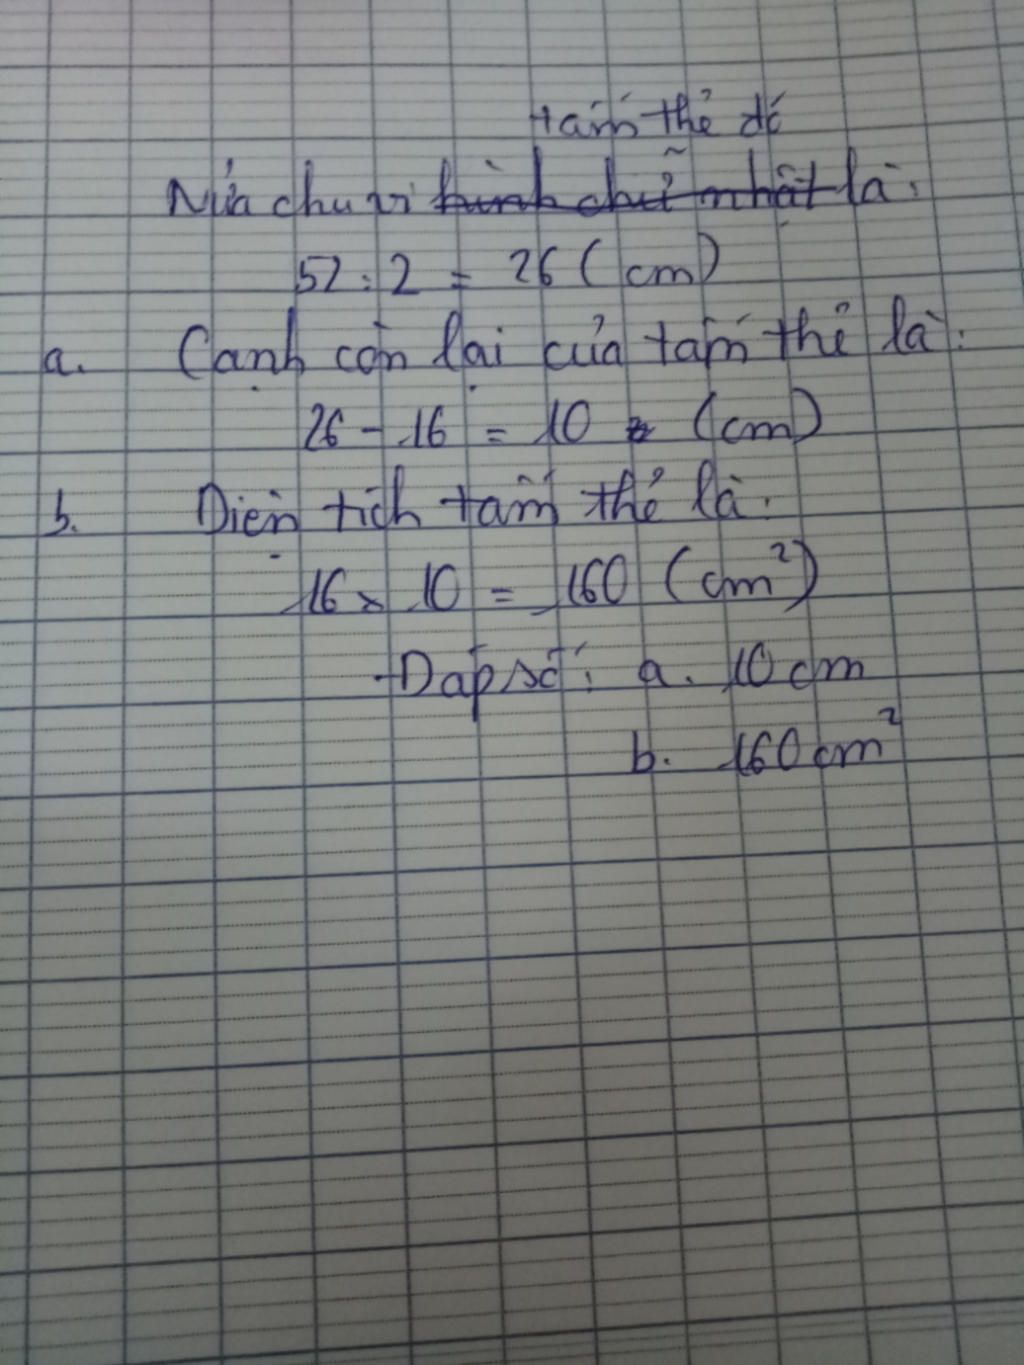 tấm thẻ đó
Nửa chu vi hình chữ nhật là:
52 : 2 = 26 (cm)
a. Cạnh còn lại của tấm thẻ là:
26 - 16 = 10 (cm)
b. Diện tích tấm thẻ là:
16 x 10 = 160 (cm²)
Đáp số: a. 10 cm
b. 160 cm²